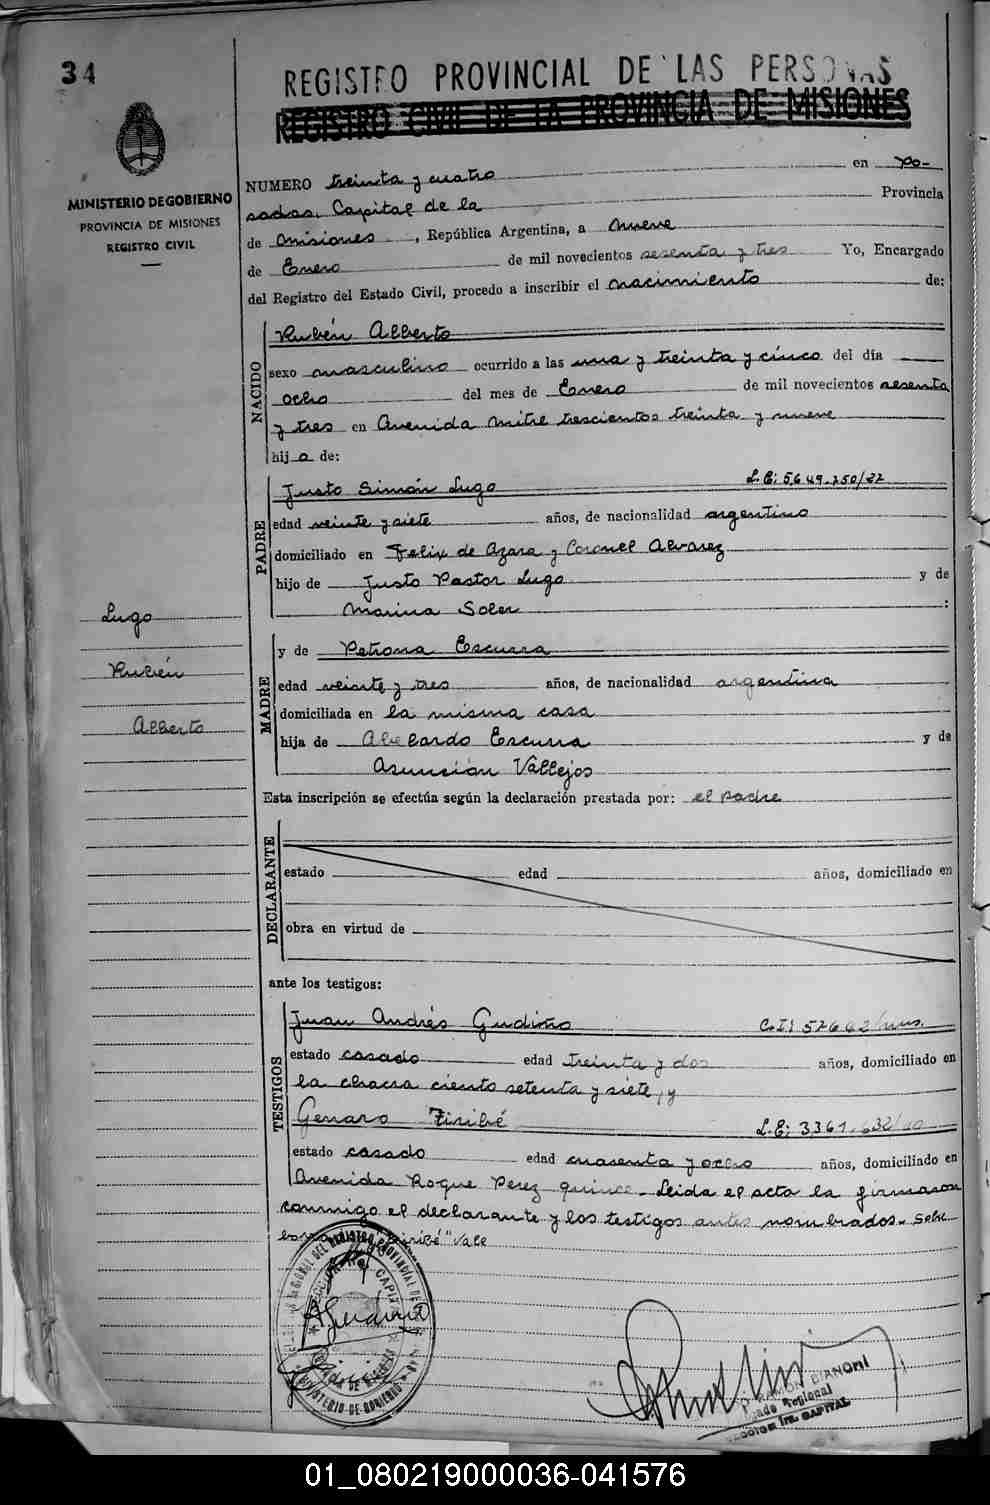 34
REGISTRO PROVINCIAL DE LAS PERSONAS
REGISTRO CIVIL DE LA PROVINCIA DE MISIONES
MINISTERIO DE GOBIERNO
PROVINCIA DE MISIONES
REGISTRO CIVIL
NUMERO treinta y cuatro en Po-
sadas, Capital de la Provincia
de Misiones, República Argentina, a nueve
de Enero de mil novecientos sesenta y tres Yo, Encargado
del Registro del Estado Civil, procedo a inscribir el nacimiento de:
NACIDO
Rubén Alberto
sexo masculino ocurrido a las una y treinta y cinco del día
ocho del mes de Enero de mil novecientos sesenta
y tres en Avenida Mitre trescientos treinta y nueve
hijo de:
PADRE
Justo Simón Lugo L.E: 5.649.250/32
edad veinte y siete años, de nacionalidad argentino
domiciliado en Felix de Azara y Coronel Alvarez
hijo de Justo Pastor Lugo y de
Marina Soler :
Lugo
Rubén
Alberto
MADRE
y de Petrona Escurra
edad veinte y tres años, de nacionalidad argentina
domiciliada en la misma casa
hija de Abelardo Escurra y de
Asunción Vallejos
Esta inscripción se efectúa según la declaración prestada por: el padre
DECLARANTE
estado edad años, domiciliado en
obra en virtud de
ante los testigos:
TESTIGOS
Juan Andrés Gudiño C.I: 57662/mns.
estado casado edad treinta y dos años, domiciliado en
la chacra ciento setenta y siete, y
Genaro Ziribé L.E: 3361.632/
estado casado edad cuarenta y ocho años, domiciliado en
Avenida Roque Perez quince. Leida el acta la firmaron
conmigo el declarante y los testigos antes nombrados. Sobre
"Vale
MINISTERIO DE GOBIERNO
RAMON BIANCHI
Regional
CAPITAL
01_080219000036-041576